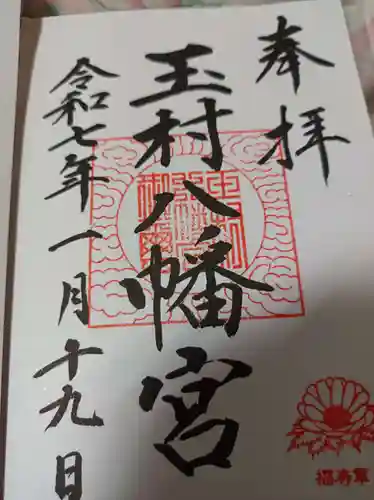 奉拝
玉村八幡宮
令和七年一月十九日
福寿草